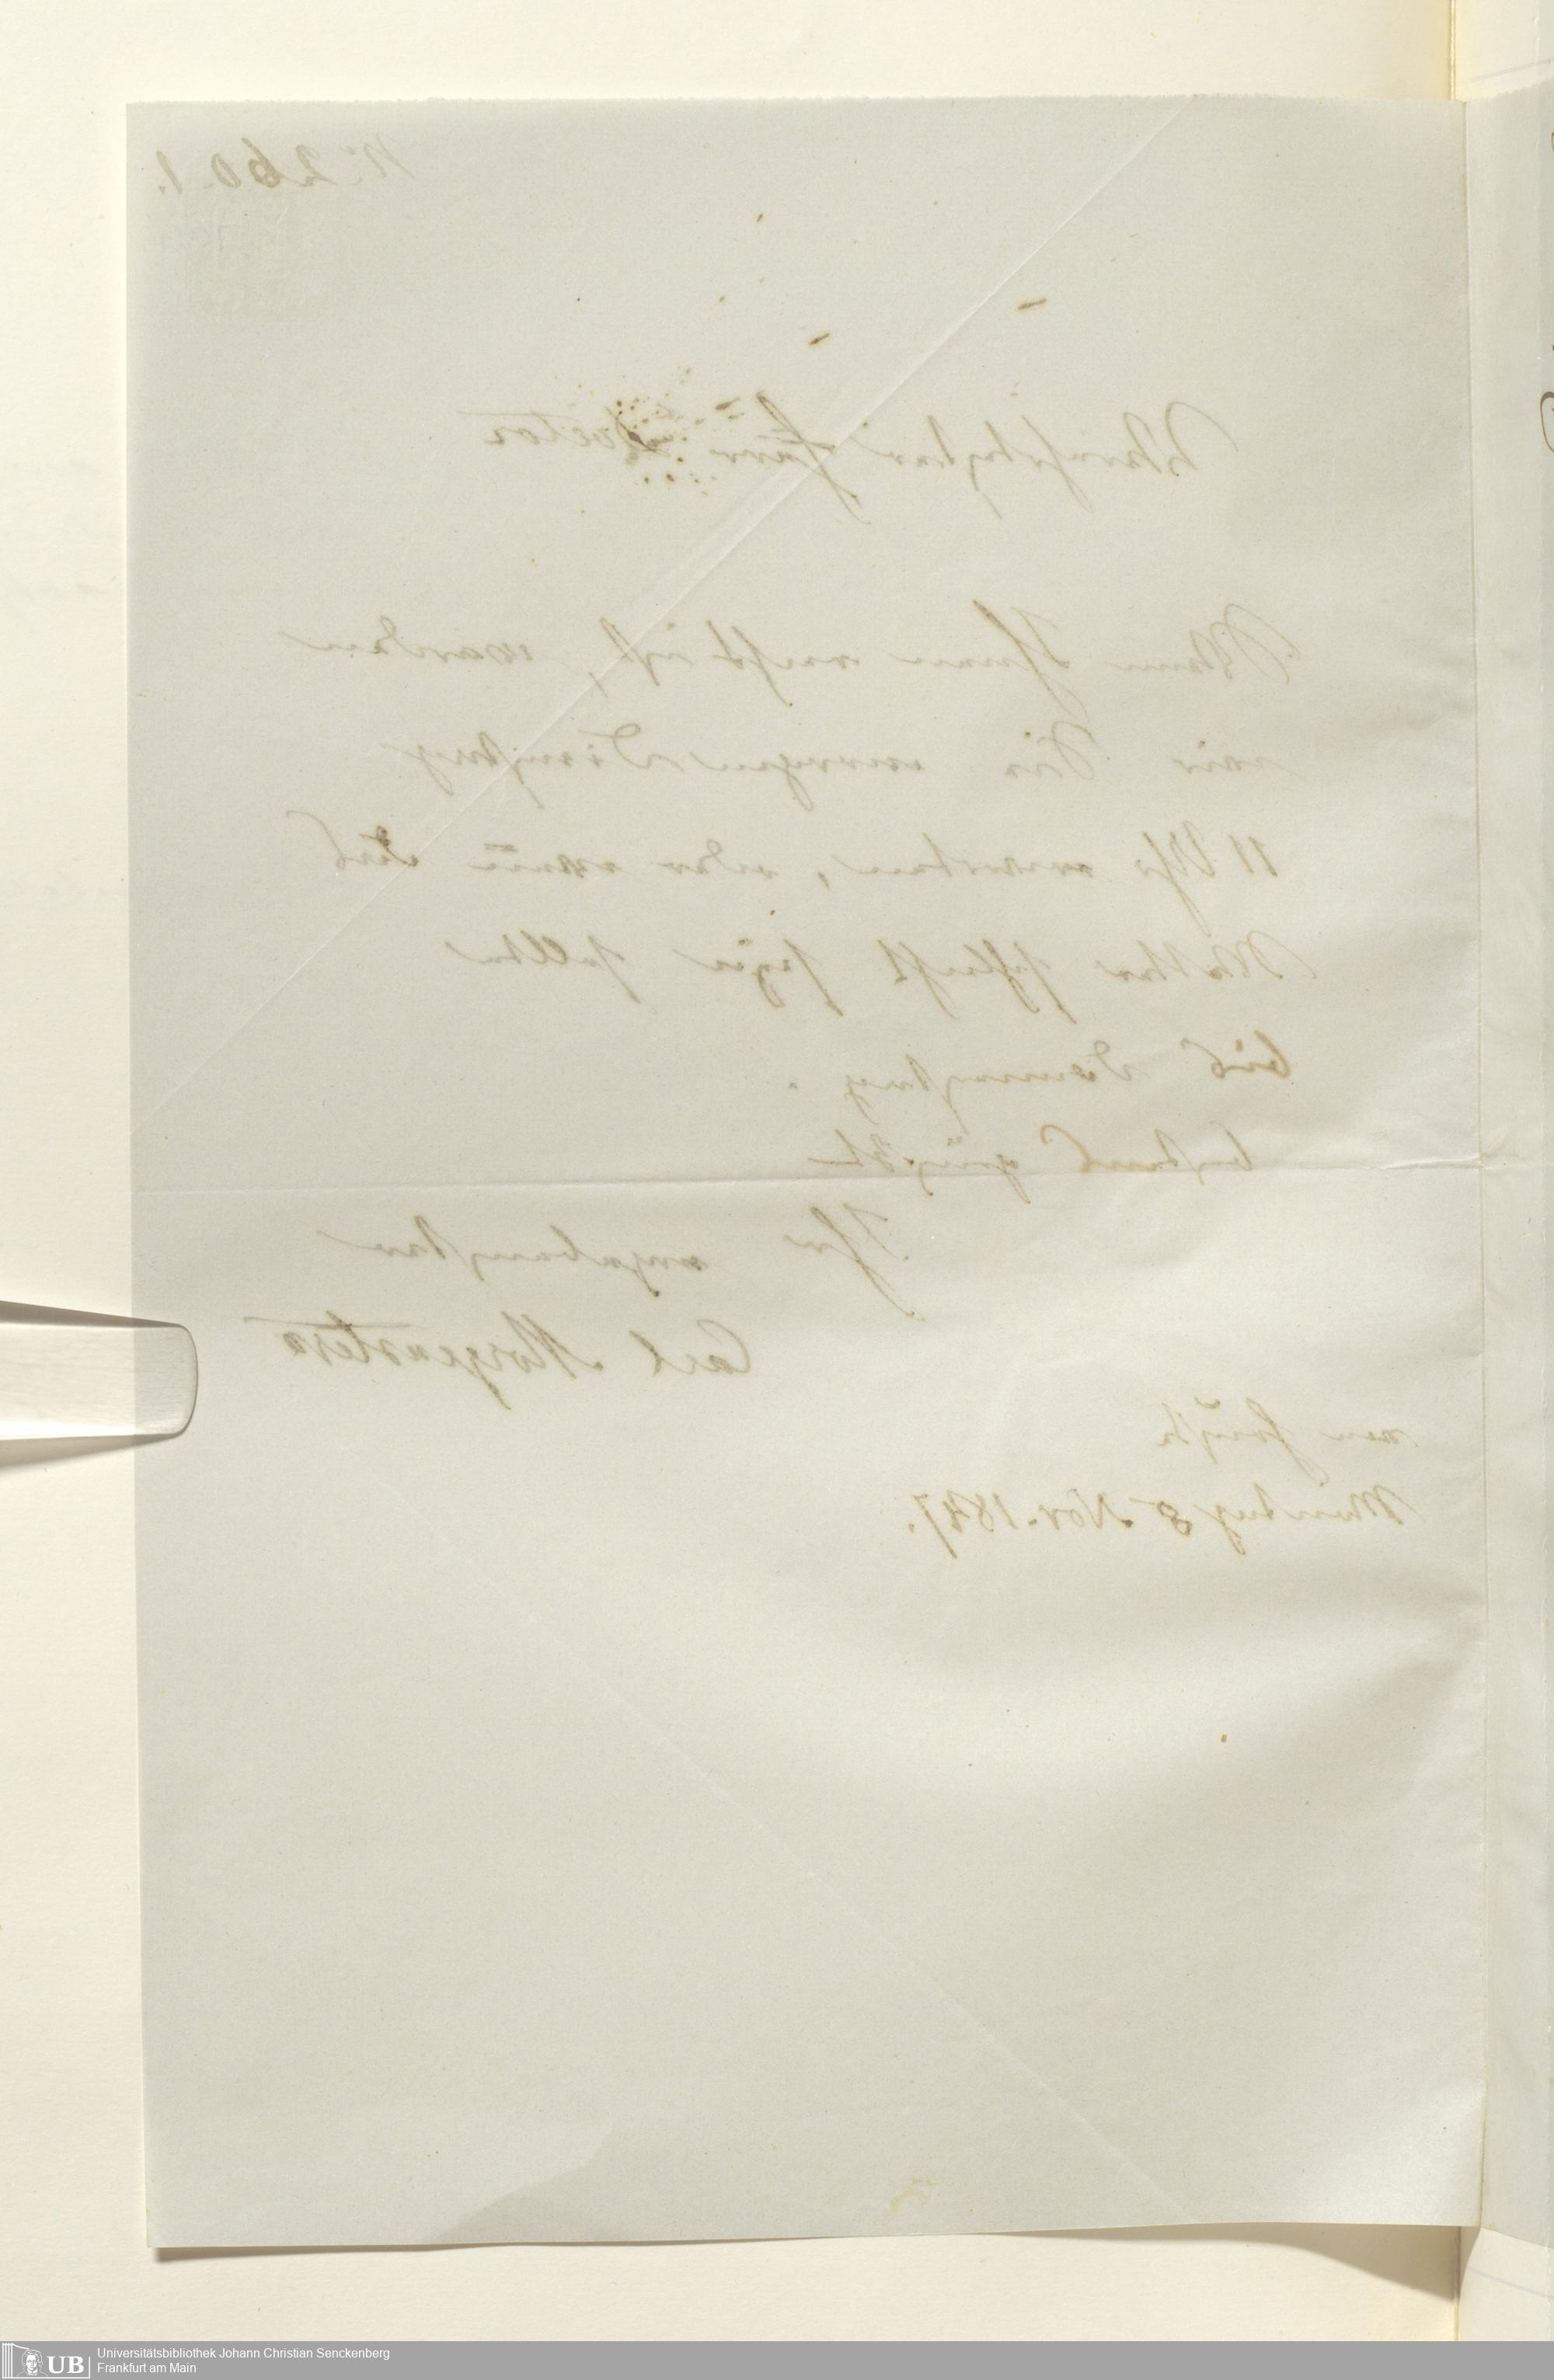 No. 260. 1.
Verehrtester Herr Doctor
Wenn Ihnen recht ist, werden
wir Sie morgen Dienstag
11 Uhr erwarten, oder wenn das
Wetter schlecht seyn sollte
bis Donnerstag.
bestens grüßt
Ihr ergebenster
Carl Morgenstern
Montag 8 Nov. 1847.
UB
Universitätsbibliothek Johann Christian Senckenberg
Frankfurt am Main